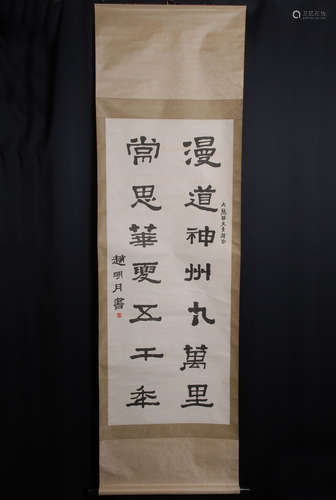 漫道神州九萬里
常思華夏五千年
趙明月書